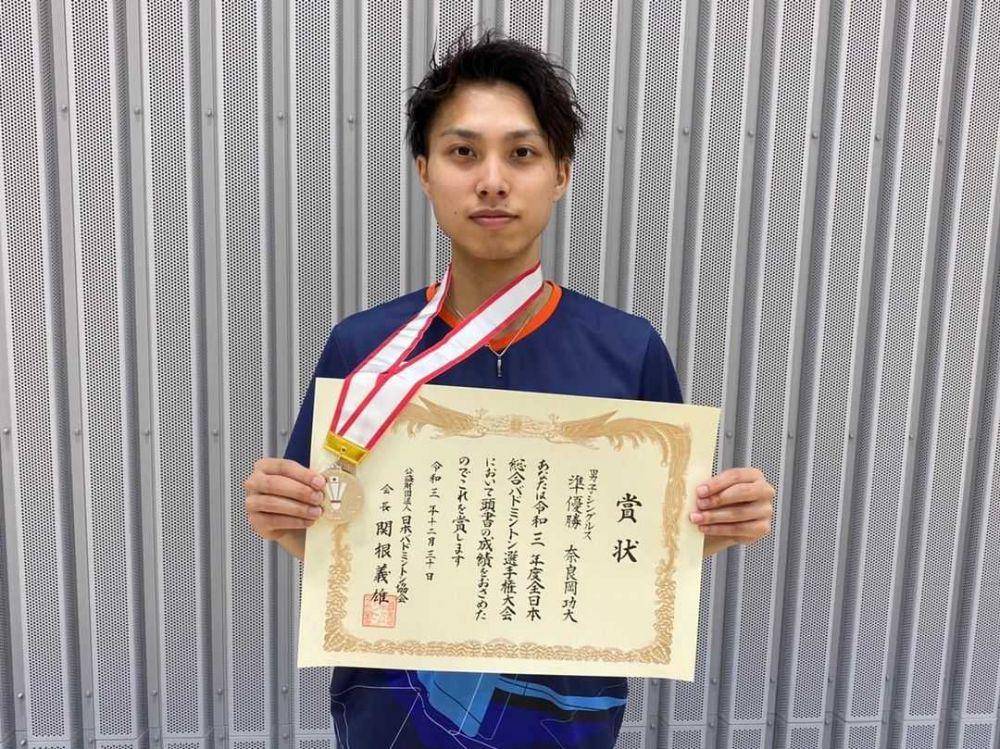 賞状
男子シングルス
準優勝 奈良岡功大
あなたは令和三年度全日本
総合バドミントン選手権大会
において頭書の成績をおさめた
のでこれを賞します
令和三年十二月三十日
公益財団法人 日本バドミントン協会
会長 関根義雄